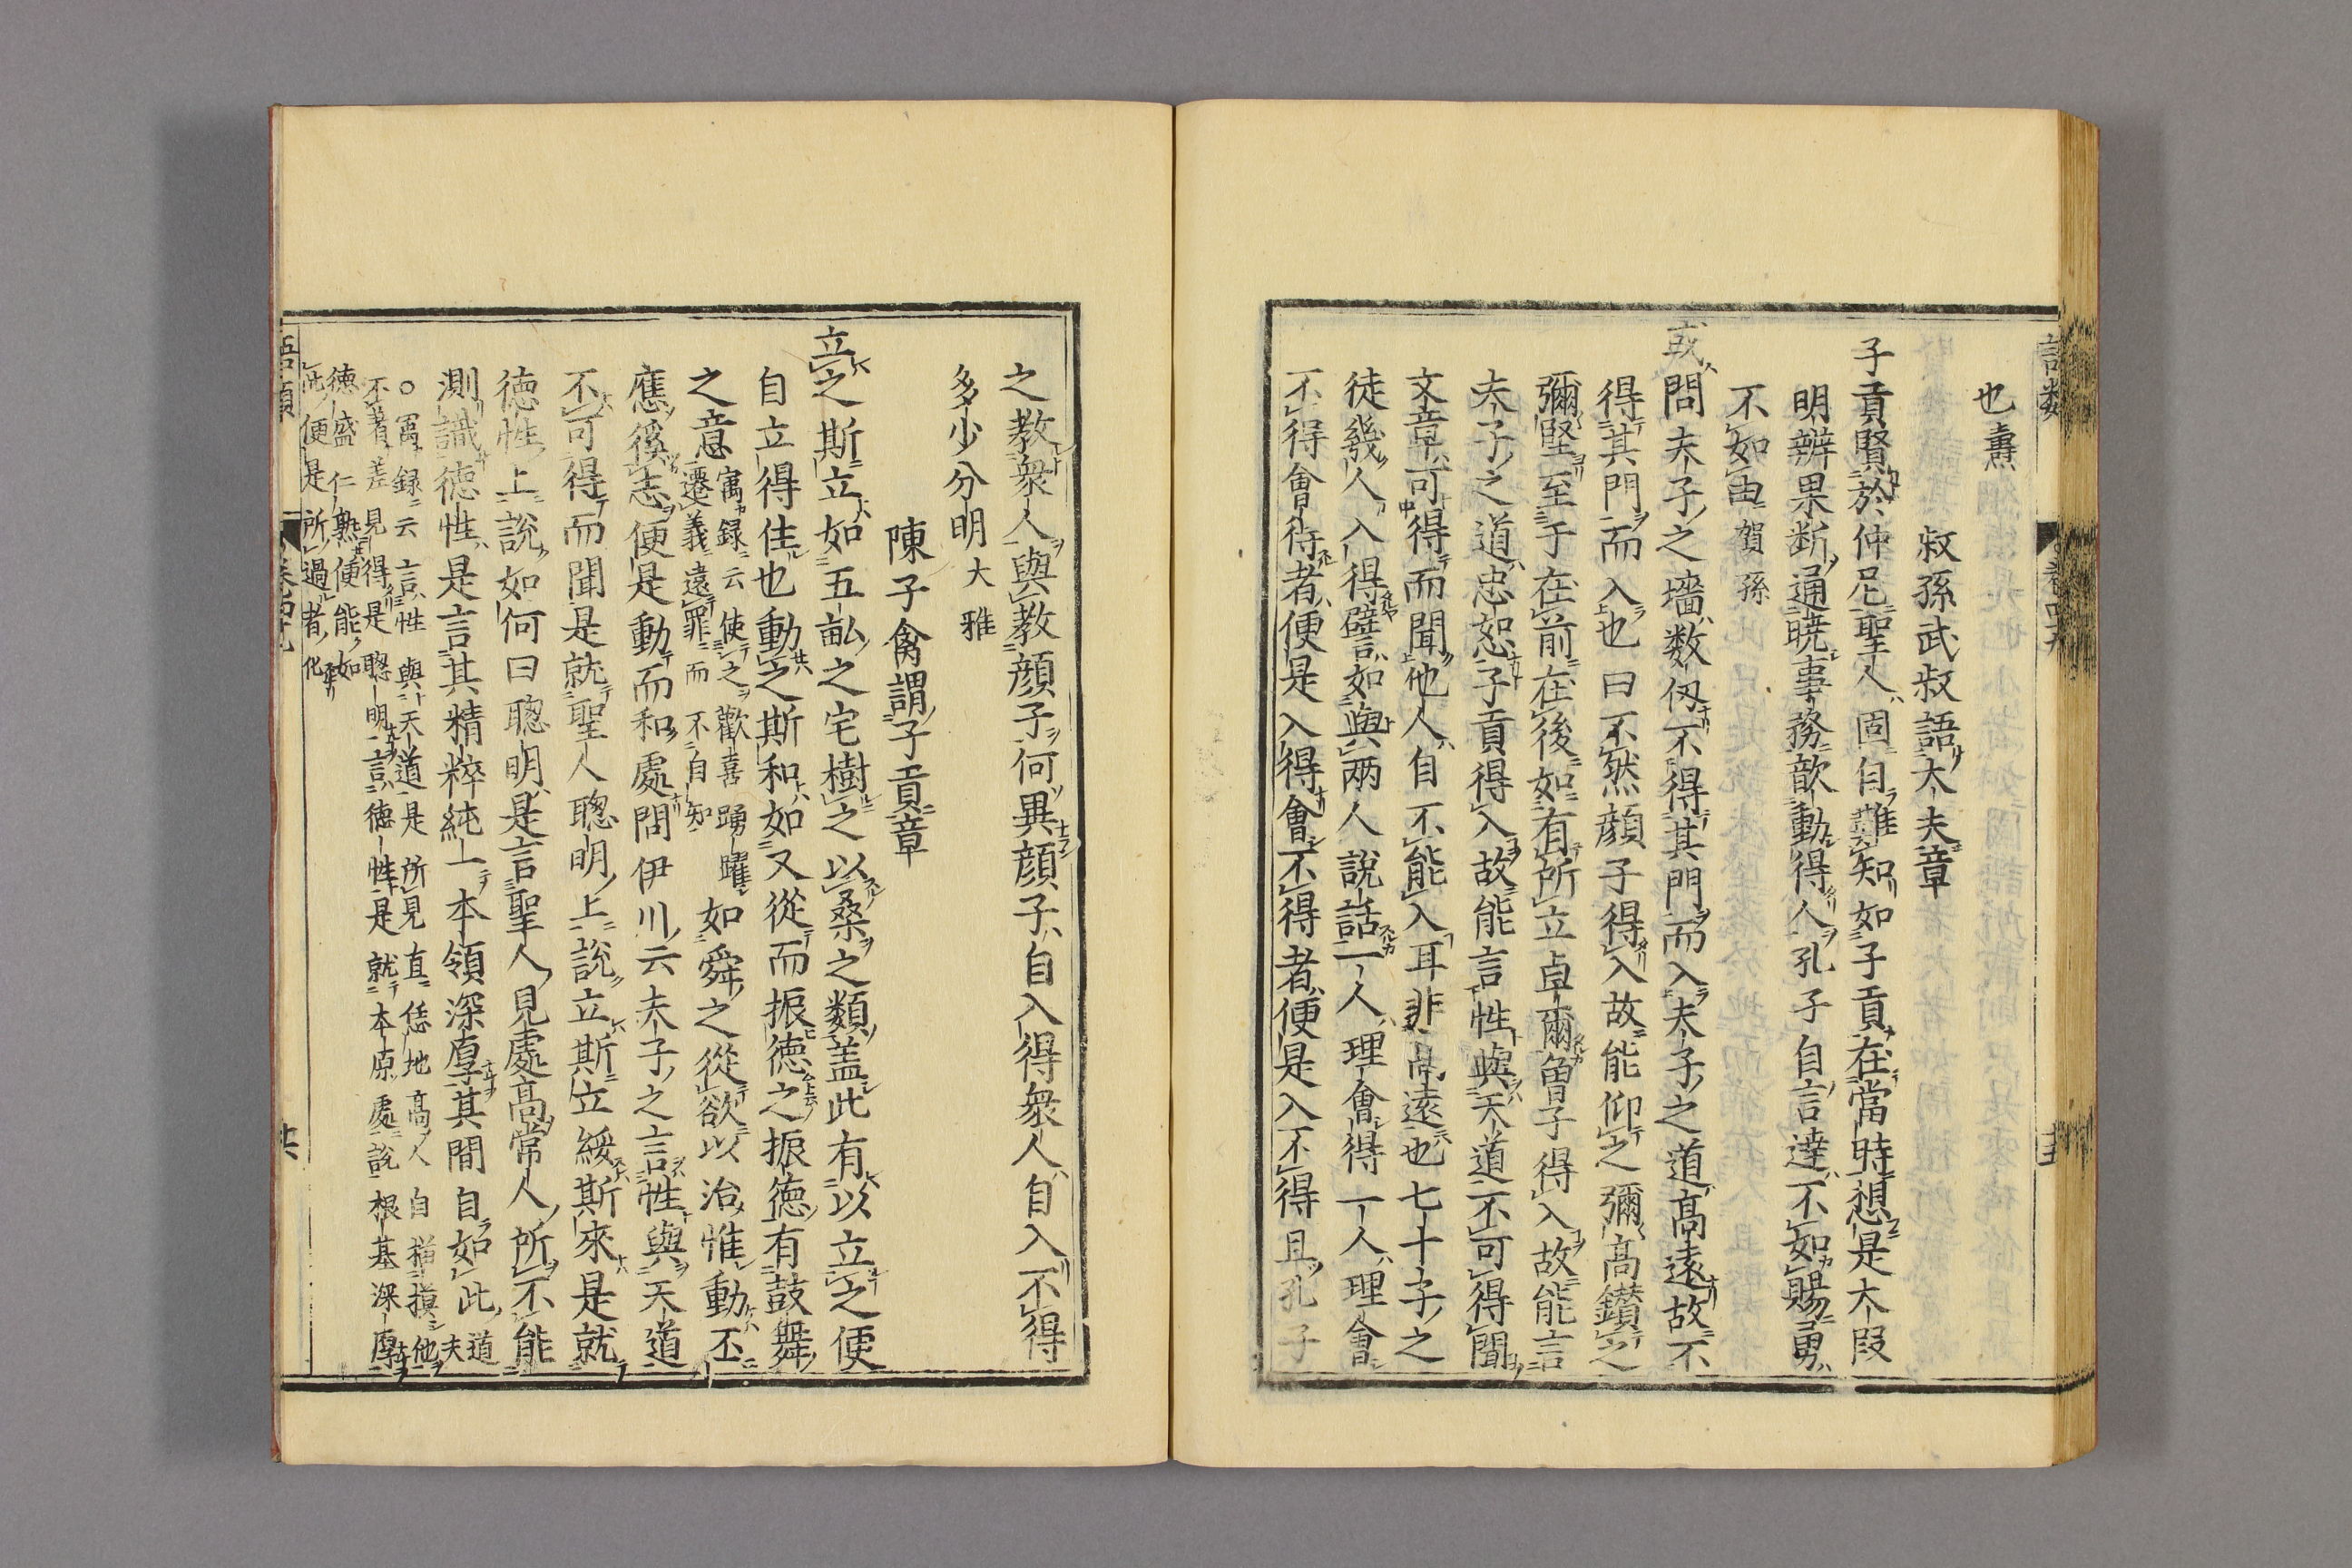 也燾
叔孫武叔語大夫章
子貢賢於仲尼聖人固自難知如子貢在當時想是大叚
明辨果斷通曉事務歆動得人孔子自言達不如賜勇
不如由賀孫
或問夫子之墻数仭不得其門而入夫子之道高遠故不
得其門而入也曰不然顔子得入故能仰之彌高鑚之
彌堅至于在前在後如有所立卓爾曽子得入故能言
夫子之道忠恕子貢得入故能言性與天道不可得聞
文章可得而聞他人自不能入耳非高遠也七十子之
徒幾人入得譬如與兩人說話一人理會得一人理會
不得會得者便是入得會不得者便是入不得且孔子
之教衆人與教顔子何異顔子自入得衆人自入不得
多少分明大雅
陳子禽謂子貢章
立之斯立如五畝之宅樹之以桑之類盖此有以立之便
自立得住也動之斯和如又從而振徳之振徳有鼓舞
之意㝢録云使之歡喜踴躍遷義遠罪而不自知如舜之從欲以治惟動丕
應徯志便是動而和處問伊川云夫子之言性與天道
不可得而聞是就聖人聰明上說立斯立綏斯來是就
徳性上說如何曰聰明是言聖人見處高常人所不能
測識徳性是言其精粹純一本領深厚其間自如此道夫
○㝢録云言性與天道是所見直恁地高人自描摸他
不著差見得是聰明言徳性是就本原處說根基深厚
徳盛仁熟便能如此便是所過者化